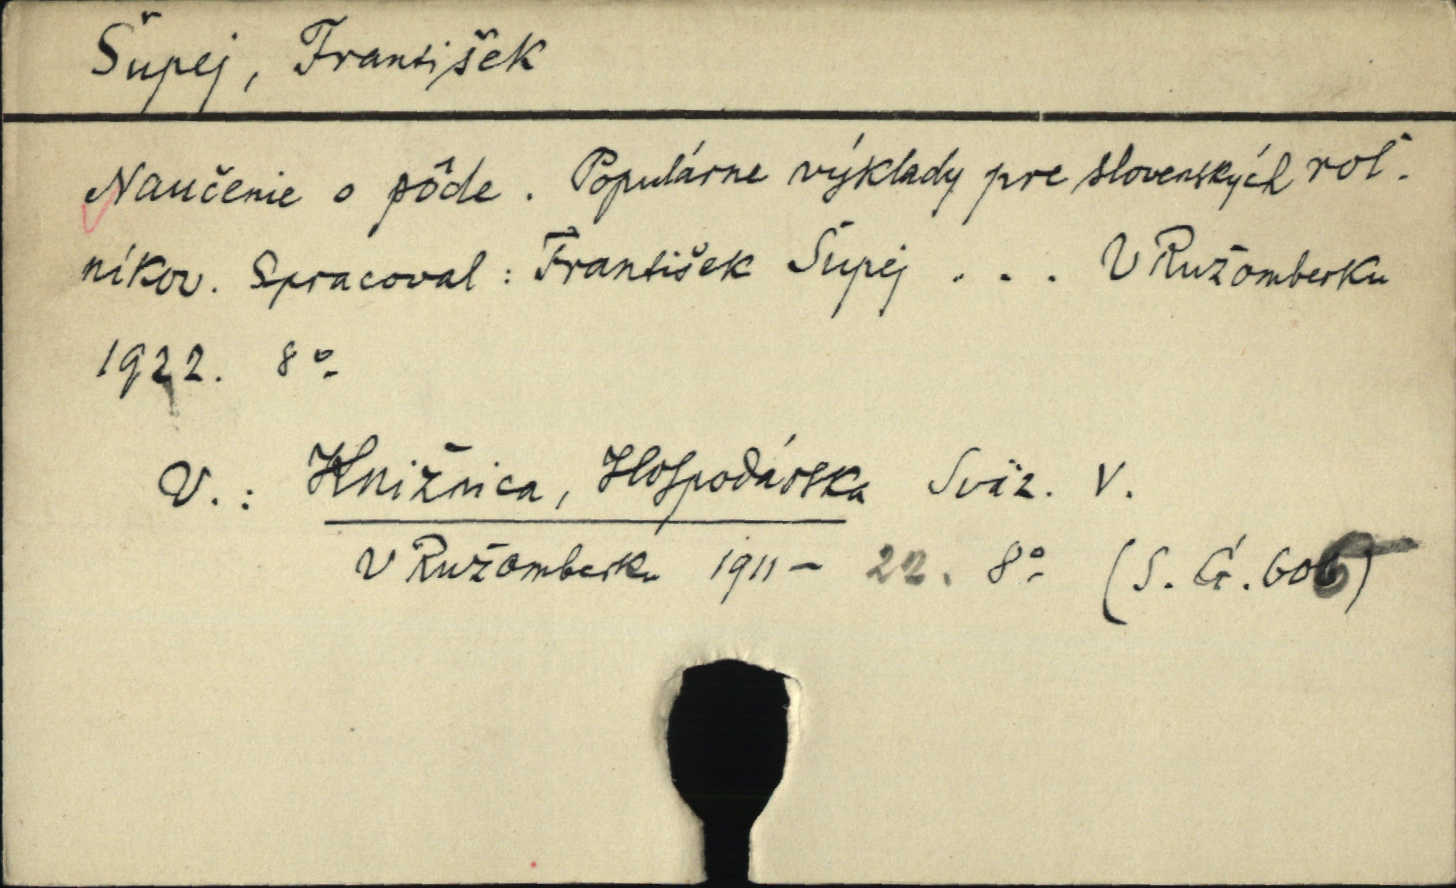 Šupej, František
Naučenie o pôde. Populárne výklady pre slovenských roľ-
níkov. Spracoval: František Šupej ... V Ružomberku
1922. 8°
V.: Knižnica, Hospodárska Sväz. V.
V Ružomberku 1911- 22. 8° (S. G.